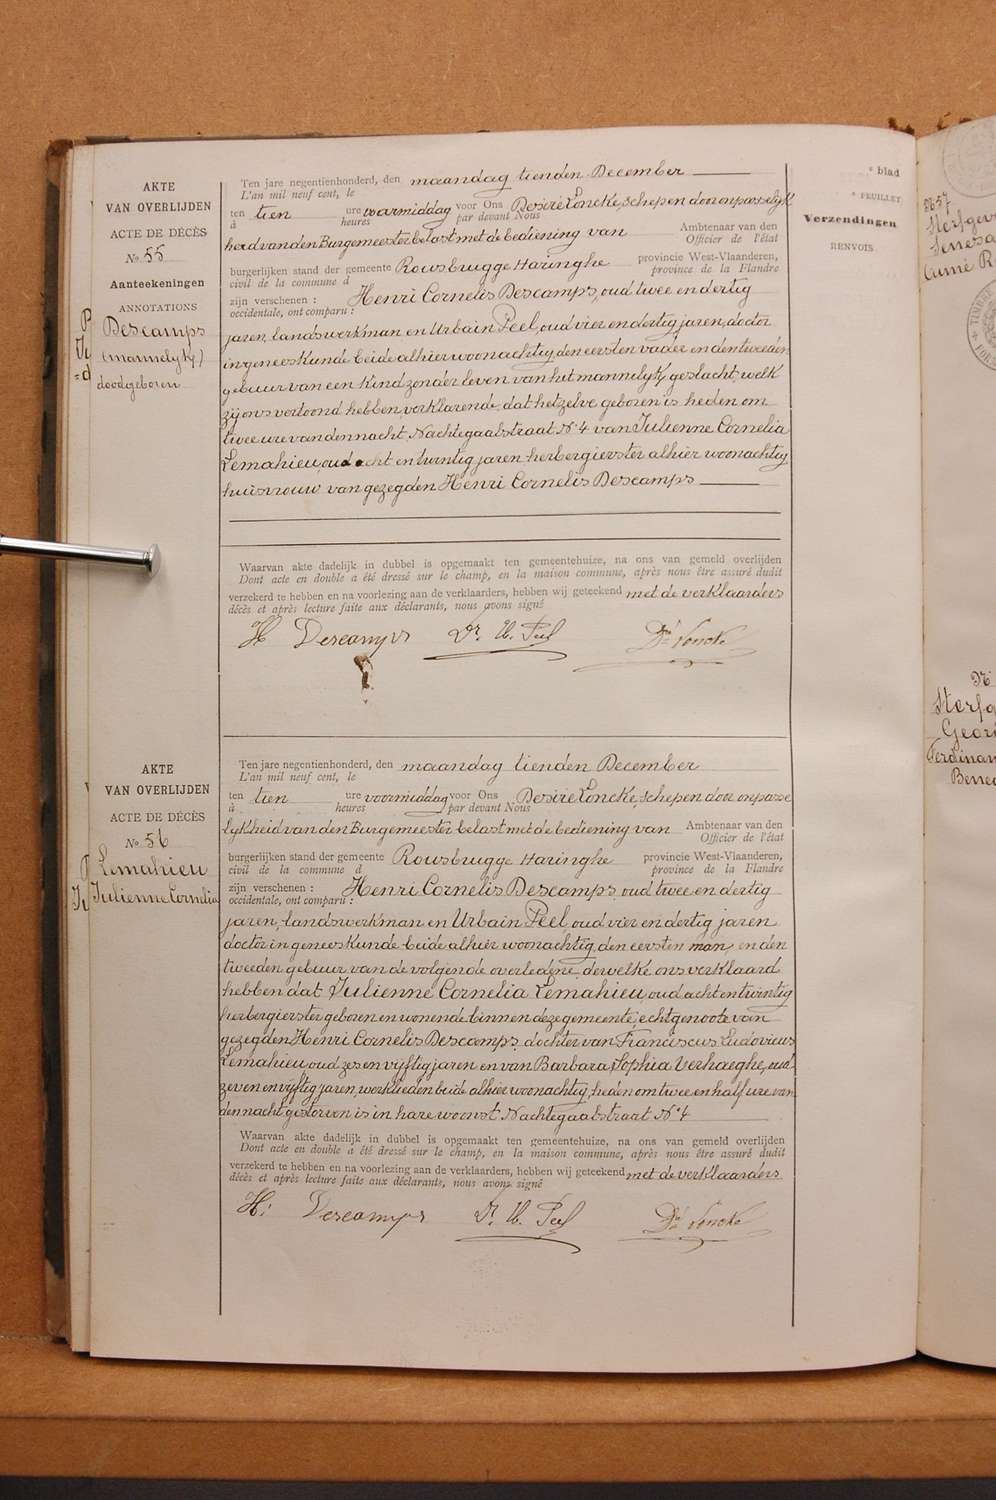 AKTE
VAN OVERLIJDEN
ACTE DE DÉCÈS
No 55
Aanteekeningen
ANNOTATIONS
Descamps
(mannelyk)
doodgeboren
Ten jare negentienhonderd, den maandag tienden December
L'an mil neuf cent, le
ten tien ure voormiddag voor Ons Desiré Loncke, schepen door onpasselyk
à heures par devant Nous
heid van den Burgemeester belast met de bediening van Ambtenaar van den
Officier de l'état
burgerlijken stand der gemeente Rousbrugge Haringhe provincie West-Vlaanderen,
civil de la commune d province de la Flandre
zijn verschenen : Henri Cornelis Descamps, oud twee en dertig
occidentale, ont comparu :
jaren, landswerkman en Urbain Peel, oud vier en dertig jaren, doctor
in geneeskunde beide alhier woonachtig, den eersten vader en den tweeden
gebuur van een kind zonder leven van het mannelyk geslacht, welk
zij ons vertoond hebben, verklarende dat hetzelve geboren is heden om
twee ure van den nacht, Nachtegaalstraat No 4 van Julienne Cornelia
Lemahieu, oud acht en twintig jaren, herbergierster alhier woonachtig
huisvrouw van gezegden Henri Cornelis Descamps
Waarvan akte dadelijk in dubbel is opgemaakt ten gemeentehuize, na ons van gemeld overlijden
Dont acte en double a été dressé sur le champ, en la maison commune, après nous être assuré dudit
verzekerd te hebben en na voorlezing aan de verklaarders, hebben wij geteekend met de verklaarders
décès et après lecture faite aux déclarants, nous avons signé
H Descamps Dr. U. Peel Dé Loncke
AKTE
VAN OVERLIJDEN
ACTE DE DÉCÈS
No 56
Lemahieu
Julienne Cornelia
Ten jare negentienhonderd, den maandag tienden December
L'an mil neuf cent, le
ten tien ure voormiddag voor Ons Desiré Loncke, schepen door onpasse
à heures par devant Nous
lykheid van den Burgemeester belast met de bediening van Ambtenaar van den
Officier de l'état
burgerlijken stand der gemeente Rousbrugge Haringhe provincie West-Vlaanderen,
civil de la commune d province de la Flandre
zijn verschenen : Henri Cornelis Descamps, oud twee en dertig
occidentale, ont comparu :
jaren, landswerkman en Urbain Peel, oud vier en dertig jaren
doctor in geneeskunde beide alhier woonachtig, den eersten man en den
tweeden gebuur van de volgende overledene, dewelke ons verklaard
hebben dat Julienne Cornelia Lemahieu, oud acht en twintig
herbergierster geboren en wonende binnen deze gemeente, echtgenoote van
gezegden Henri Cornelis Descamps, dochter van Franciscus Ludovicus
Lemahieu oud zes en vyftig jaren en van Barbara Sophia Verhaeghe, oud
zeven en vyftig jaren, werklieden beide alhier woonachtig, heden om twee en half ure van
den nacht gestorven is in hare woonst Nachtegaalstraat No 4
Waarvan akte dadelijk in dubbel is opgemaakt ten gemeentehuize, na ons van gemeld overlijden
Dont acte en double a été dressé sur le champ, en la maison commune, après nous être assuré dudit
verzekerd te hebben en na voorlezing aan de verklaarders, hebben wij geteekend met de verklaarders
décès et après lecture faite aux déclarants, nous avons signé
H. Descamps Dr. U. Peel Dé Loncke
e blad
e FEUILLET
Verzendingen
RENVOIS
No 57
Sterfgev
Aimé R
TIMBRE
No
Sterfg
Geor
Ferdinan
Bened